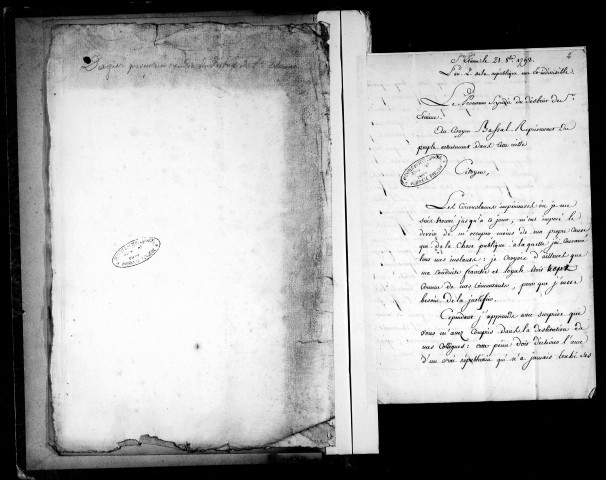 Dagier procureur syndic du district de St. Etienne
St. Etienne le 21. 8bre 1793.
L'an 2 de la république une et indivisible
2
Le Procureur Syndic du district de St.
Etienne
Au Citoyen Bassal Représentant du
peuple actuellement dans cette ville
Citoyen,
Les Circonstances impérieuses où je me
suis trouvé jusqu'à ce jour, m'ont imposé le
devoir de m'occuper moins de ma propre cause
que de la chose publique à laquelle j'ai consacré
tous mes instants: je croyois d'ailleurs que
ma conduite franche et loyale étoit trop
connue de mes commettants, pour que j'eusse
besoin de la justifier.
Cependant j'apprends avec surprise que
vous m'avez compris dans la destitution de
mes collègues: cette peine doit affecter l'ame
d'un vrai républicain qui n'a jamais trahi ses